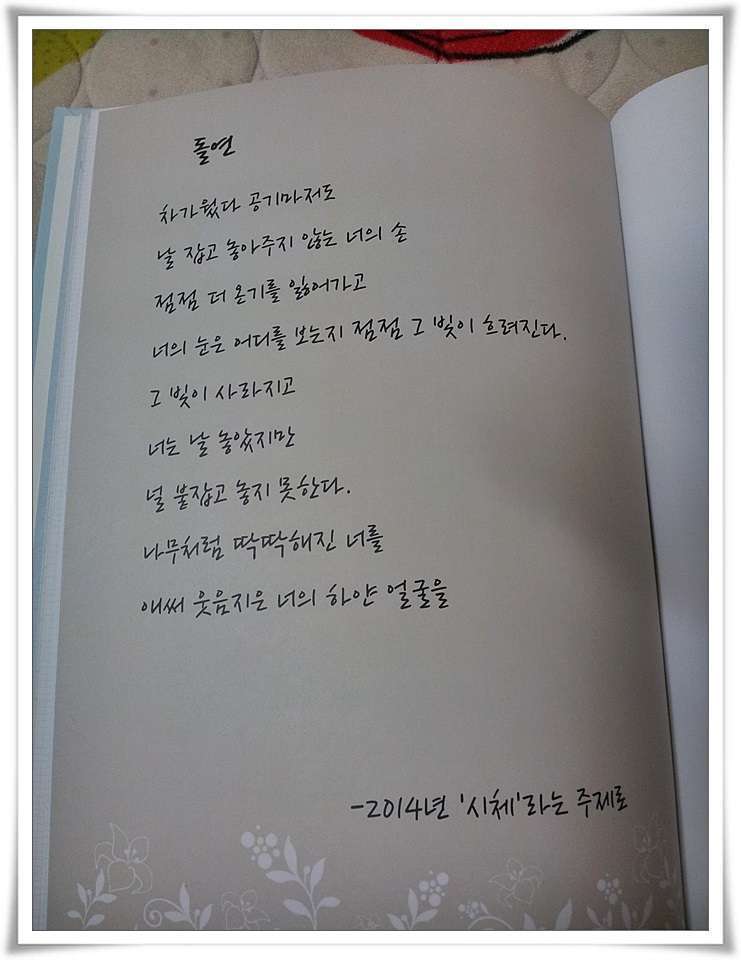 돌연
차가웠다 공기마저도
날 잡고 놓아주지 않는 너의 손
점점 더 온기를 잃어가고
너의 눈은 어디를 보는지 점점 그 빛이 흐려진다.
그 빛이 사라지고
너는 날 놓았지만
널 붙잡고 놓지 못한다.
나무처럼 딱딱해진 너를
애써 웃음지은 너의 하얀 얼굴을
-2014년 '시체'라는 주제로